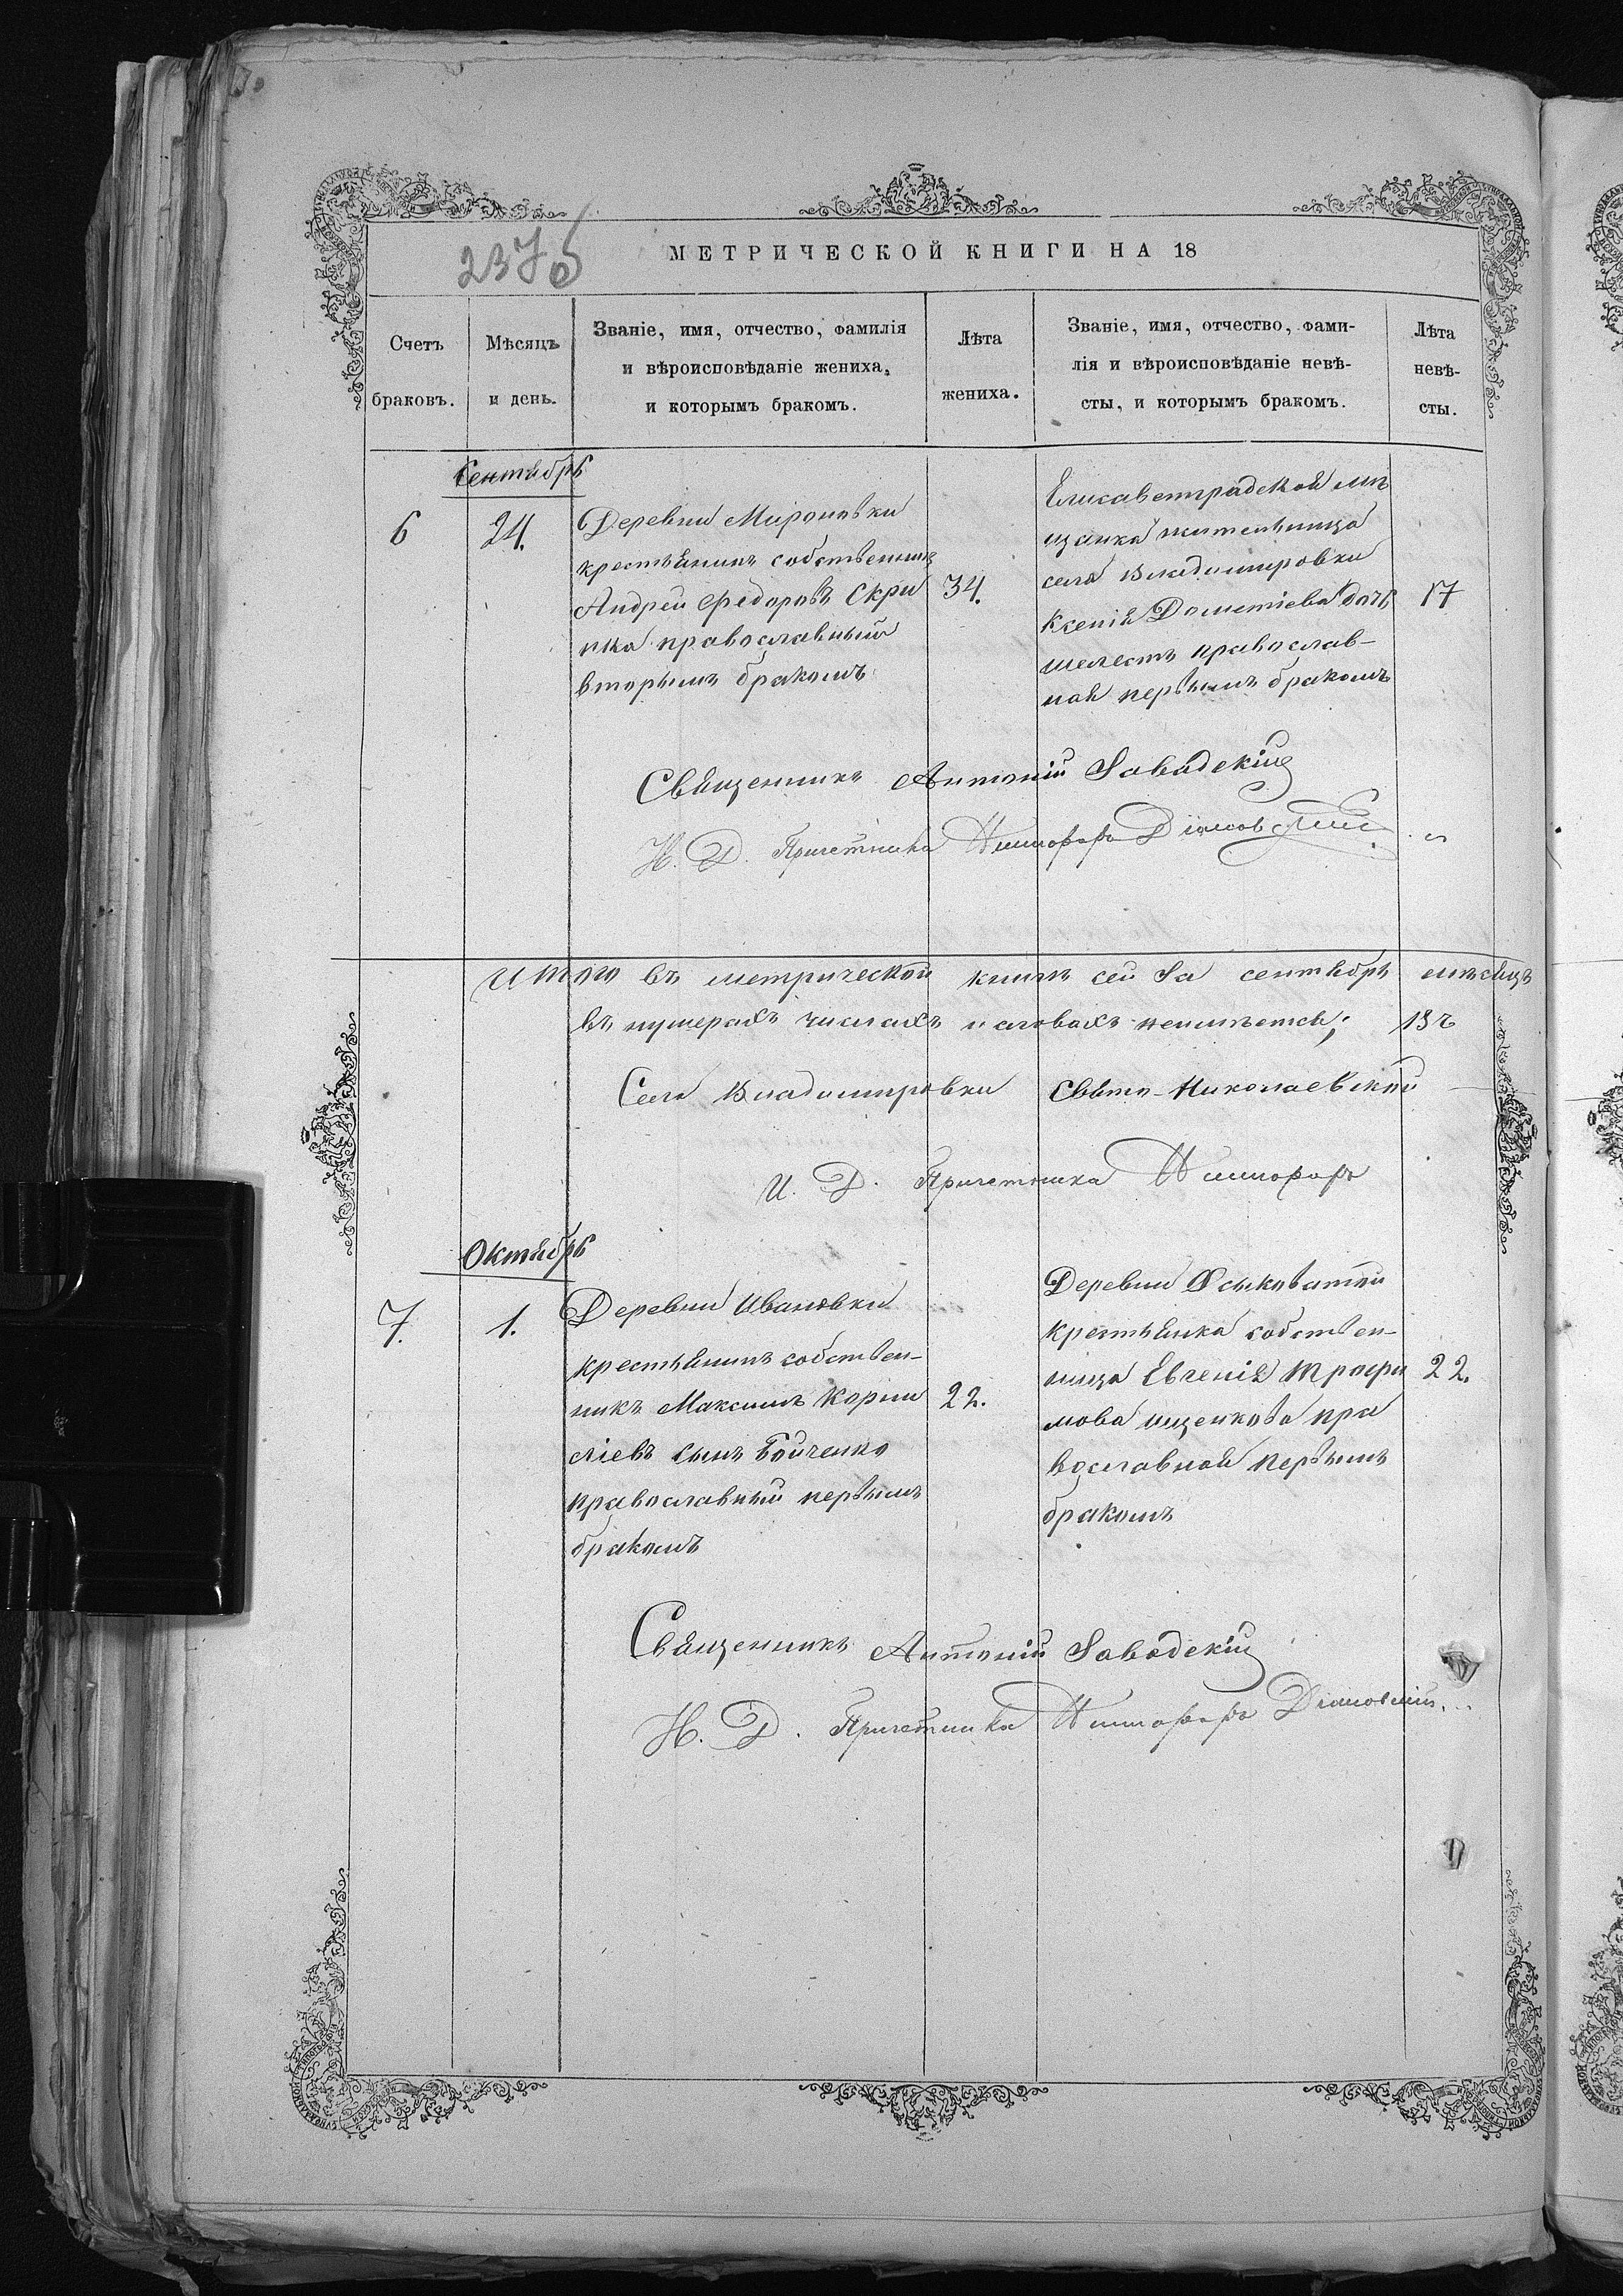 237об
МЕТРИЧЕСКОЙ КНИГИ НА 18
Счетъ браковъ.
Мѣсяцъ и день.
Званіе, имя, отчество, фамилія
и вѣроисповѣданіе жениха,
и которымъ бракомъ.
Лѣта жениха.
Званіе, имя, отчество, фами-
лія и вѣроисповѣданіе невѣ-
сты, и которымъ бракомъ.
Лѣта невѣ-
сты.
Сентябрь
6
24.
Деревни Мироновки
крестьянинъ собственникъ
Андрей Федоровъ Скри
пка православный
вторымъ бракомъ
34.
Елисаветградской мѣ
щанка жительница
села Владимировки
Ксенія Дометіева дочь
Шелестъ православ-
ная первымъ бракомъ
17
Священникъ Антоній Завадскій
И. Д. Причетника Никифоръ
Итого въ метрической книгѣ сей за сентябрь мѣсяцъ
въ нумерахъ числахъ и словахъ неимѣется;
Села Владимировки Свято-Николаевской
И. Д. Причетника Никифоръ
Октябрь
7.
1.
Деревни Ивановки
крестьянинъ собствен-
никъ Максимъ Корни
ліевъ сынъ Бойченко
православный первымъ
бракомъ
22.
Деревни Осиковатой
крестьянка собствен-
ница Евгенія Трофи
мова Ищенкова пра
вославной первымъ
бракомъ
22.
Священникъ Антоній Завадскій
И. Д. Причетника Никифоръ